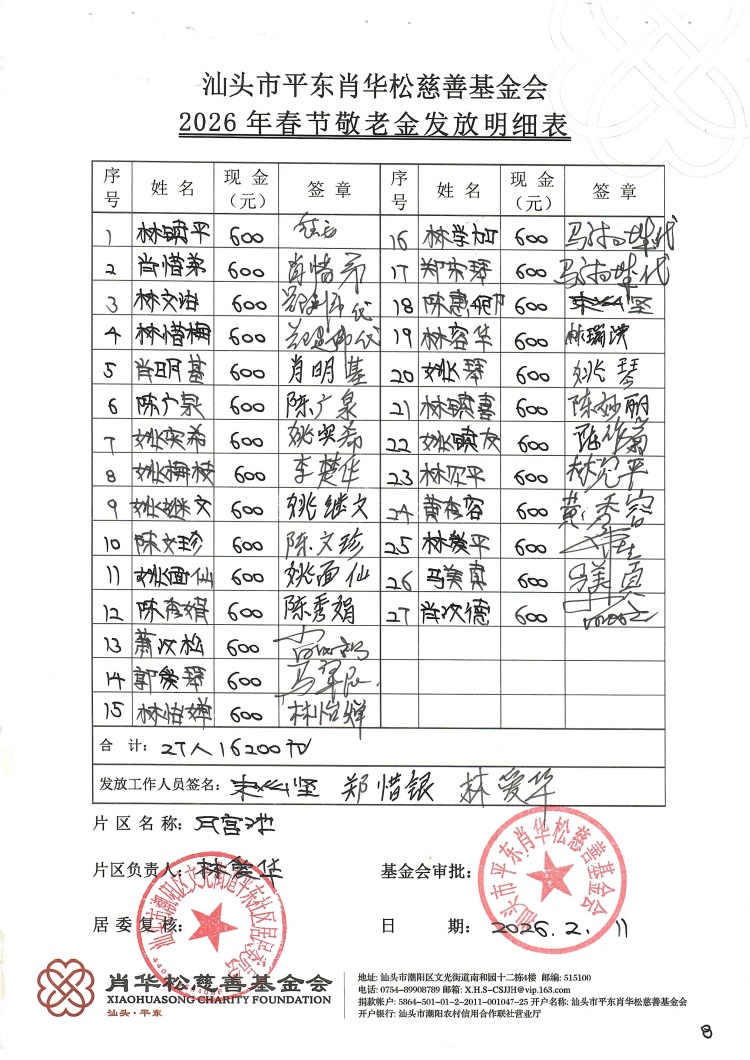 汕头市平东肖华松慈善基金会
2026年春节敬老金发放明细表
序号 姓名 现金（元） 签章 序号 姓名 现金（元） 签章
1 林镇平 600 16 林学 600
2 肖惜弟 600 肖惜弟 17 郑东琴 600
3 林文治 600 代 18 陈惠卿 600 坚
4 林惜梅 600 代 19 林容华 600 林瑞洪
5 肖明基 600 肖明基 20 姚琴 600 姚琴
6 陈广泉 600 陈广泉 21 林镇喜 600 陈妙丽
7 姚实希 600 姚实希 22 姚镇友 600
8 姚梅枝 600 李楚华 23 林平 600 林平
9 姚继文 600 姚继文 24 黄秀容 600 黄秀容
10 陈文珍 600 陈文珍 25 林爱平 600
11 姚面仙 600 姚面仙 26 马美真 600 马美真
12 陈秀娟 600 陈秀娟 27 肖汉德 600
13 萧汉松 600
14 郭爱琴 600
15 林怡婵 600 林怡婵
合 计：27人16200元
发放工作人员签名： 坚 郑惜银 林爱华
片区名称：月宫池
片区负责人：林爱华 基金会审批：
居委复核： 日 期：2026.2.11
汕头市平东肖华松慈善基金会
汕头市潮阳区文光街道平东社区居民委员会
肖华松慈善基金会
XIAOHUASONG CHARITY FOUNDATION
汕头·平东
地址：汕头市潮阳区文光街道南和园十二栋4楼 邮编：515100
电话：0754-89908789 邮箱：X.H.S-CSJJH@vip.163.com
捐款帐户：5864-501-01-2-2011-001047-25 开户名称：汕头市平东肖华松慈善基金会
开户银行：汕头市潮阳农村信用合作联社营业厅
8